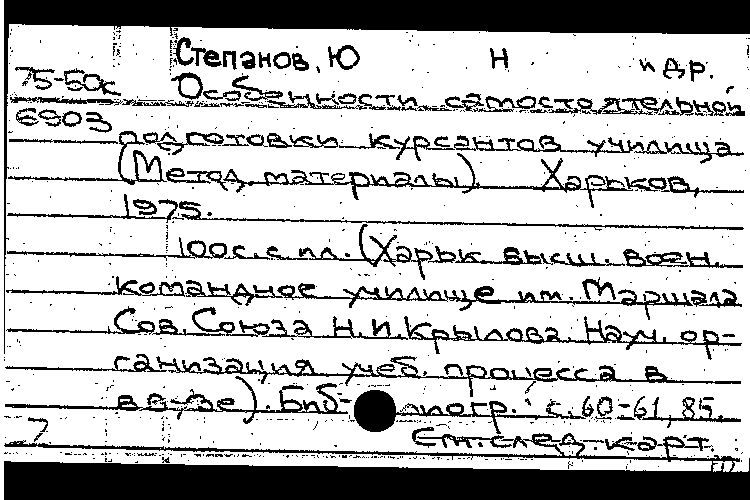 Степанов, Ю Н и др.
75-50с Особенности самостоятельной
6903 подготовки курсантов училища
(Метод. материалы). Харьков,
1975.
100с. с ил. (Харьк. высш. воен.
командное училище им. Маршала
Сов. Союза Н.И. Крылова. Науч. ор-
ганизация учеб. процесса в
в вузе). Биб-лиогр.: с. 60-61, 85.
7 См. след. карт.